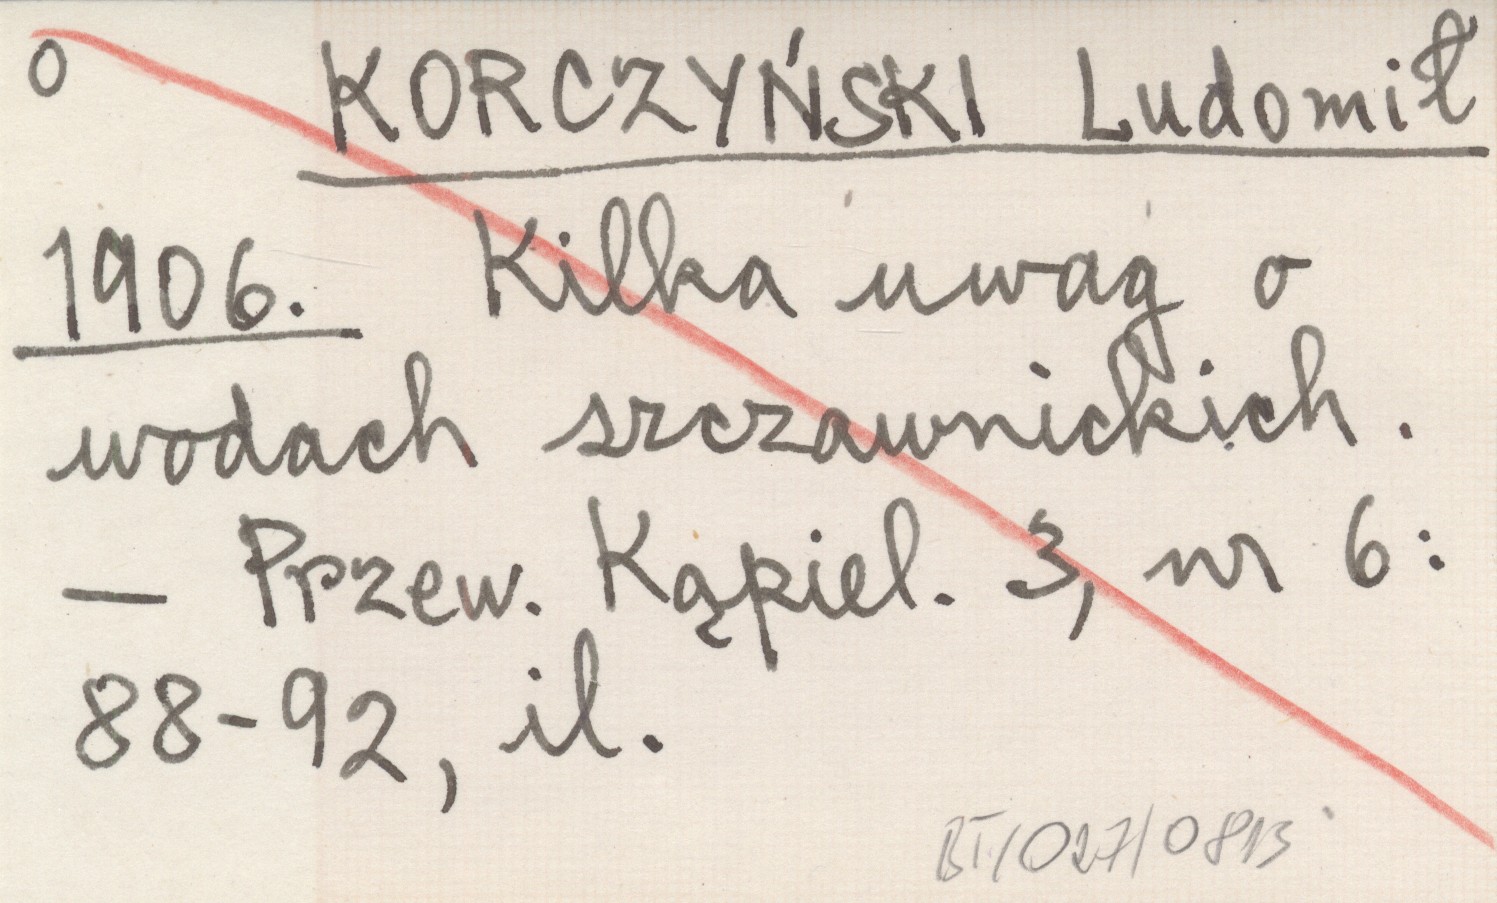 o KORCZYŃSKI Ludomił
1906. Kilka uwag o
wodach szczawnickich.
— Pprzew. Kąpiel. 3, nr 6:
88-92, il.
BT/027/0813